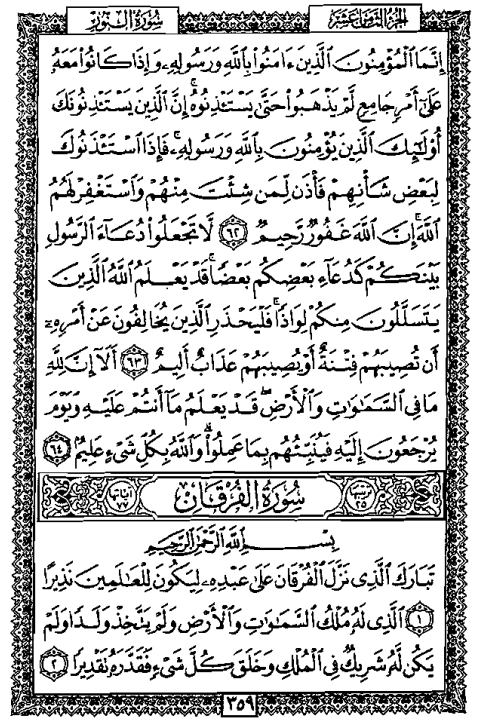 الجزء الثامن عشر
سورة النور
إِنَّمَا ٱلْمُؤْمِنُونَ ٱلَّذِينَ ءَامَنُوا۟ بِٱللَّهِ وَرَسُولِهِۦ وَإِذَا كَانُوا۟ مَعَهُۥ
عَلَىٰٓ أَمْرٍ جَامِعٍ لَّمْ يَذْهَبُوا۟ حَتَّىٰ يَسْتَـْٔذِنُوهُ ۚ إِنَّ ٱلَّذِينَ يَسْتَـْٔذِنُونَكَ
أُو۟لَـٰٓئِكَ ٱلَّذِينَ يُؤْمِنُونَ بِٱللَّهِ وَرَسُولِهِۦ ۚ فَإِذَا ٱسْتَـْٔذَنُوكَ
لِبَعْضِ شَأْنِهِمْ فَأْذَن لِّمَن شِئْتَ مِنْهُمْ وَٱسْتَغْفِرْ لَهُمُ
ٱللَّهَ ۚ إِنَّ ٱللَّهَ غَفُورٌ رَّحِيمٌ ٦٢ لَّا تَجْعَلُوا۟ دُعَآءَ ٱلرَّسُولِ
بَيْنَكُمْ كَدُعَآءِ بَعْضِكُم بَعْضًا ۚ قَدْ يَعْلَمُ ٱللَّهُ ٱلَّذِينَ
يَتَسَلَّلُونَ مِنكُمْ لِوَاذًا ۚ فَلْيَحْذَرِ ٱلَّذِينَ يُخَالِفُونَ عَنْ أَمْرِهِۦٓ
أَن تُصِيبَهُمْ فِتْنَةٌ أَوْ يُصِيبَهُمْ عَذَابٌ أَلِيمٌ ٦٣ أَلَآ إِنَّ لِلَّهِ
مَا فِى ٱلسَّمَـٰوَٰتِ وَٱلْأَرْضِ ۖ قَدْ يَعْلَمُ مَآ أَنتُمْ عَلَيْهِ وَيَوْمَ
يُرْجَعُونَ إِلَيْهِ فَيُنَبِّئُهُم بِمَا عَمِلُوا۟ ۗ وَٱللَّهُ بِكُلِّ شَىْءٍ عَلِيمٌۢ ٦٤
ترتيبها ٢٥
سُورَةُ الفُرْقَانِ
آياتها ٧٧
بِسْمِ ٱللَّهِ ٱلرَّحْمَـٰنِ ٱلرَّحِيمِ
تَبَارَكَ ٱلَّذِى نَزَّلَ ٱلْفُرْقَانَ عَلَىٰ عَبْدِهِۦ لِيَكُونَ لِلْعَـٰلَمِينَ نَذِيرًا
١ ٱلَّذِى لَهُۥ مُلْكُ ٱلسَّمَـٰوَٰتِ وَٱلْأَرْضِ وَلَمْ يَتَّخِذْ وَلَدًا وَلَمْ
يَكُن لَّهُۥ شَرِيكٌ فِى ٱلْمُلْكِ وَخَلَقَ كُلَّ شَىْءٍ فَقَدَّرَهُۥ تَقْدِيرًا ٢
٣٥٩